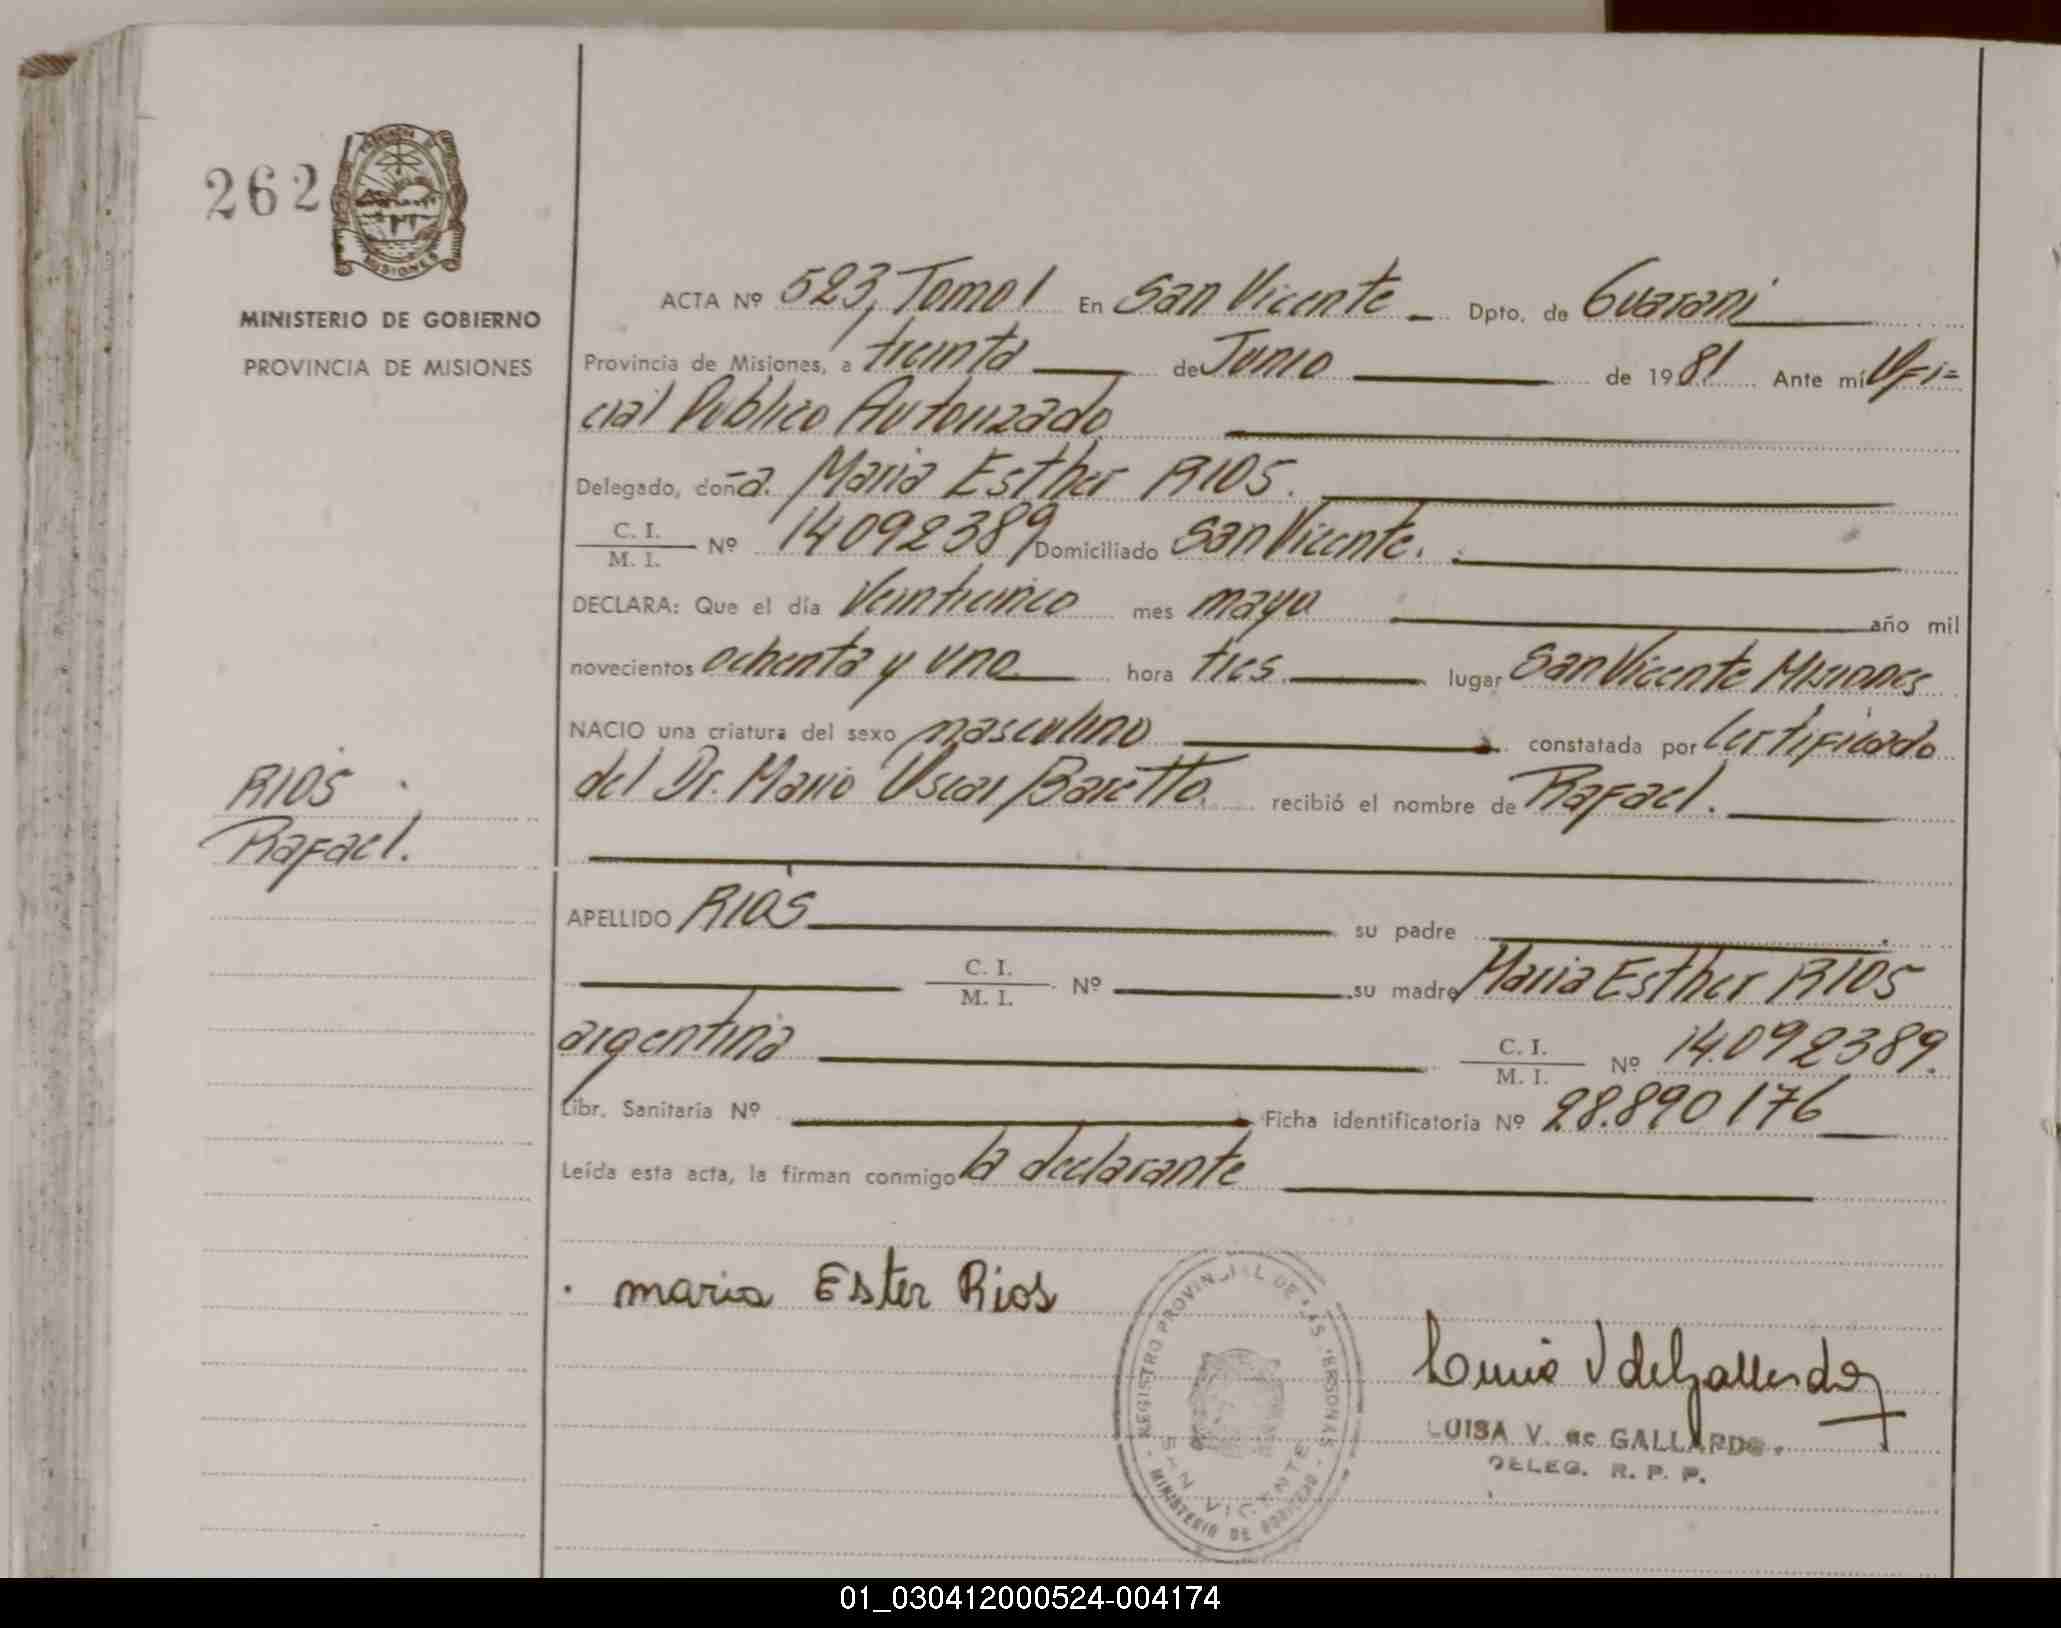 262
PROVINCIA DE
MISIONES
MINISTERIO DE GOBIERNO
PROVINCIA DE MISIONES
ACTA Nº 523, Tomo I En San Vicente Dpto. de Guarani
Provincia de Misiones, a treinta de Junio de 1981 Ante mí Ofi=
cial Publico Autorizado
Delegado, doña. Maria Esther RIOS.
C. I.
M. I. Nº 14092389 Domiciliado San Vicente.
DECLARA: Que el día Veinticinco mes mayo año mil
novecientos ochenta y uno hora tres lugar San Vicente Misiones
NACIO una criatura del sexo masculino constatada por Certificado
del Dr. Mario Oscar Baretto. recibió el nombre de Rafael.
RIOS
Rafael.
APELLIDO RIOS su padre
C. I.
M. I. Nº su madre Maria Esther RIOS
argentina C. I.
M. I. Nº 14.092389.
Libr. Sanitaria Nº Ficha identificatoria Nº 28.890176
Leída esta acta, la firman conmigo la declarante
maria Ester Rios
REGISTRO PROVINCIAL DE LAS PERSONAS
SAN VICENTE
MINISTERIO DE GOBIERNO
Luisa V de Gallardo
LUISA V. de GALLARDO.
DELEG. R. P. P.
01_030412000524-004174